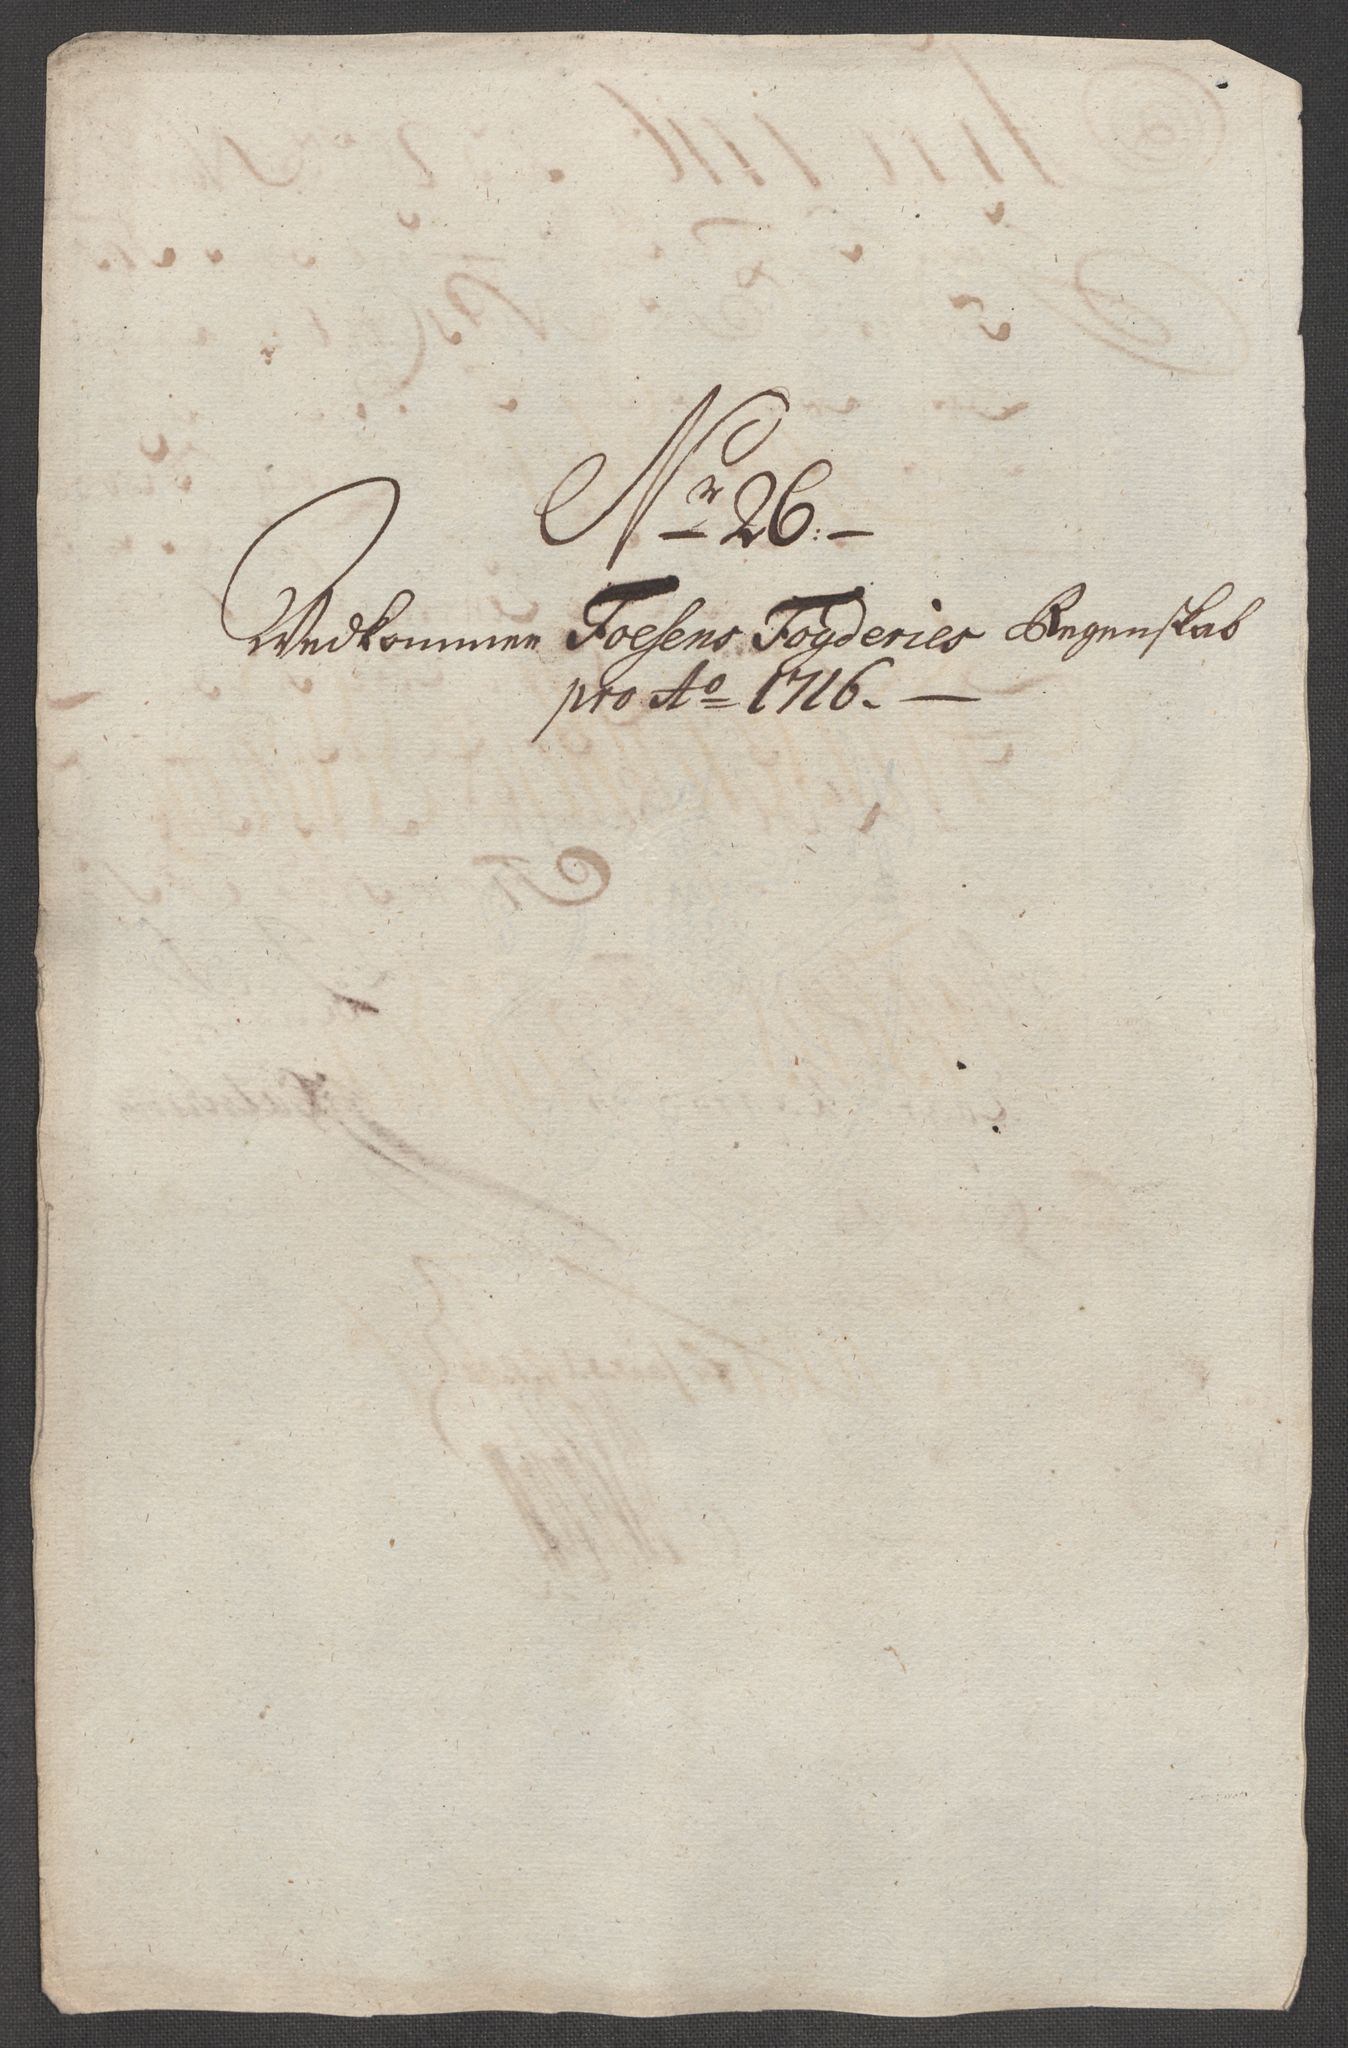 Nr 26.
Vedkommer Foesens Fogderies Regenskab
pro Ao 1716.